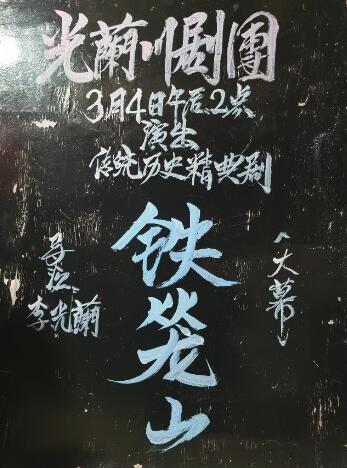 光蘭川剧團
3月4日午后2点
演出
传统历史精典剧
铁笼山
〈大幕〉
李光蘭